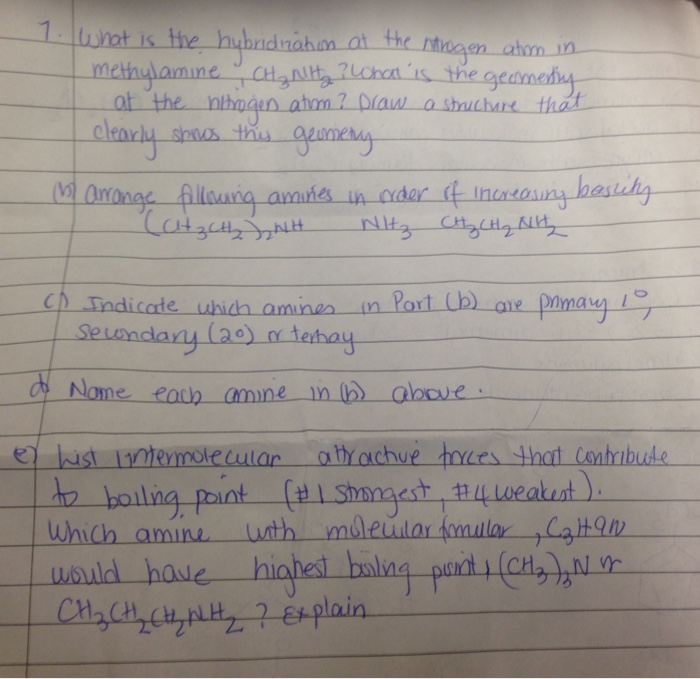 7. What is the hybridization at the nitrogen atom in
methylamine, CH3NH2? What is the geometry
at the nitrogen atom? Draw a structure that
clearly shows this geometry
(b) arrange following amines in order of increasing basicity
(CH3CH2)2NH NH3 CH3CH2NH2
c) Indicate which amines in Part (b) are primary 1°,
Secondary (2°) or tertiay
d) Name each amine in (b) above.
e) List intermolecular attractive forces that contribute
to boiling point (#1 strongest, #4 weakest).
Which amine with molecular formular, C3H9N
would have highest boiling point, (CH3)3N or
CH3CH2CH2NH2? Explain